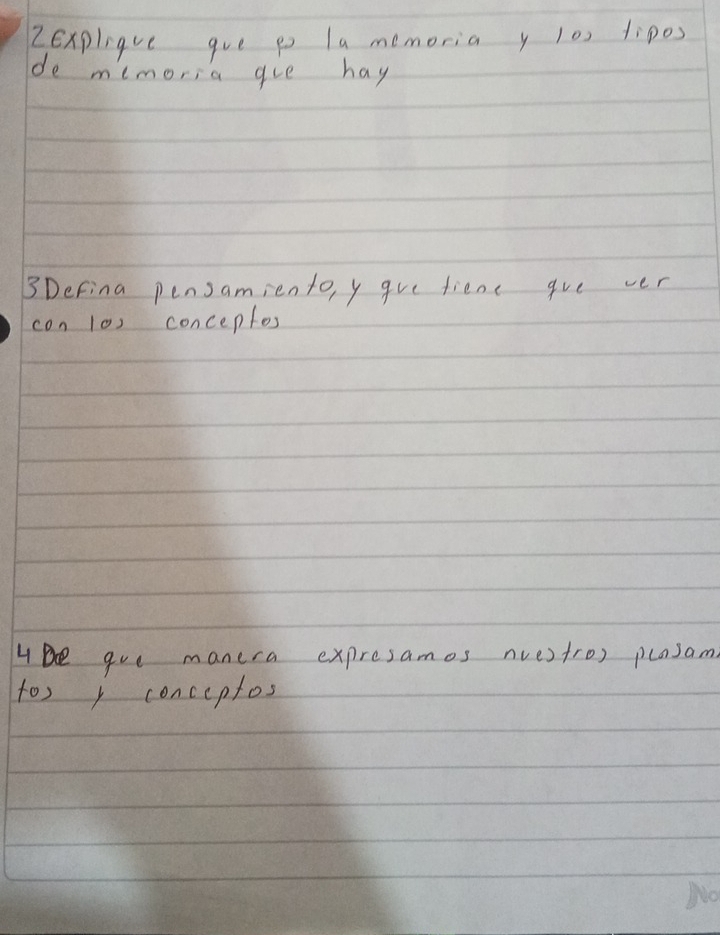 2 Explique que es la memoria y los tipos
de memoria que hay
3 Defina pensamiento, y que tiene que ver
con los conceptos
4 De que manera expresamos nuestros pensam
tos y conceptos
No